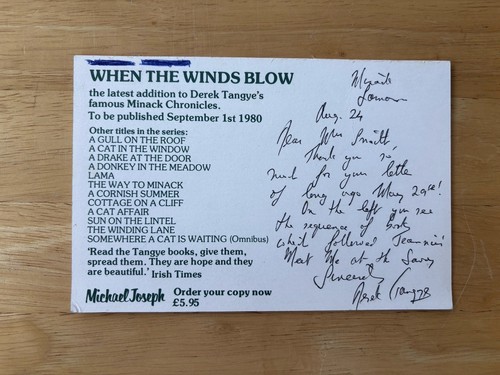 WHEN THE WINDS BLOW
the latest addition to Derek Tangye's
famous Minack Chronicles.
To be published September 1st 1980
Other titles in the series:
A GULL ON THE ROOF
A CAT IN THE WINDOW
A DRAKE AT THE DOOR
A DONKEY IN THE MEADOW
LAMA
THE WAY TO MINACK
A CORNISH SUMMER
COTTAGE ON A CLIFF
A CAT AFFAIR
SUN ON THE LINTEL
THE WINDING LANE
SOMEWHERE A CAT IS WAITING (Omnibus)
'Read the Tangye books, give them,
spread them. They are hope and they
are beautiful.' Irish Times
Michael Joseph Order your copy now
£5.95
Minack
Lamorna
Aug. 24
Dear Mrs Smith,
Thank you so
much for your letter
of long ago May 29th!
On the left you see
the sequence of books
which followed Jeannie's
Meet Me at the Savoy
Sincerely
Derek Tangye